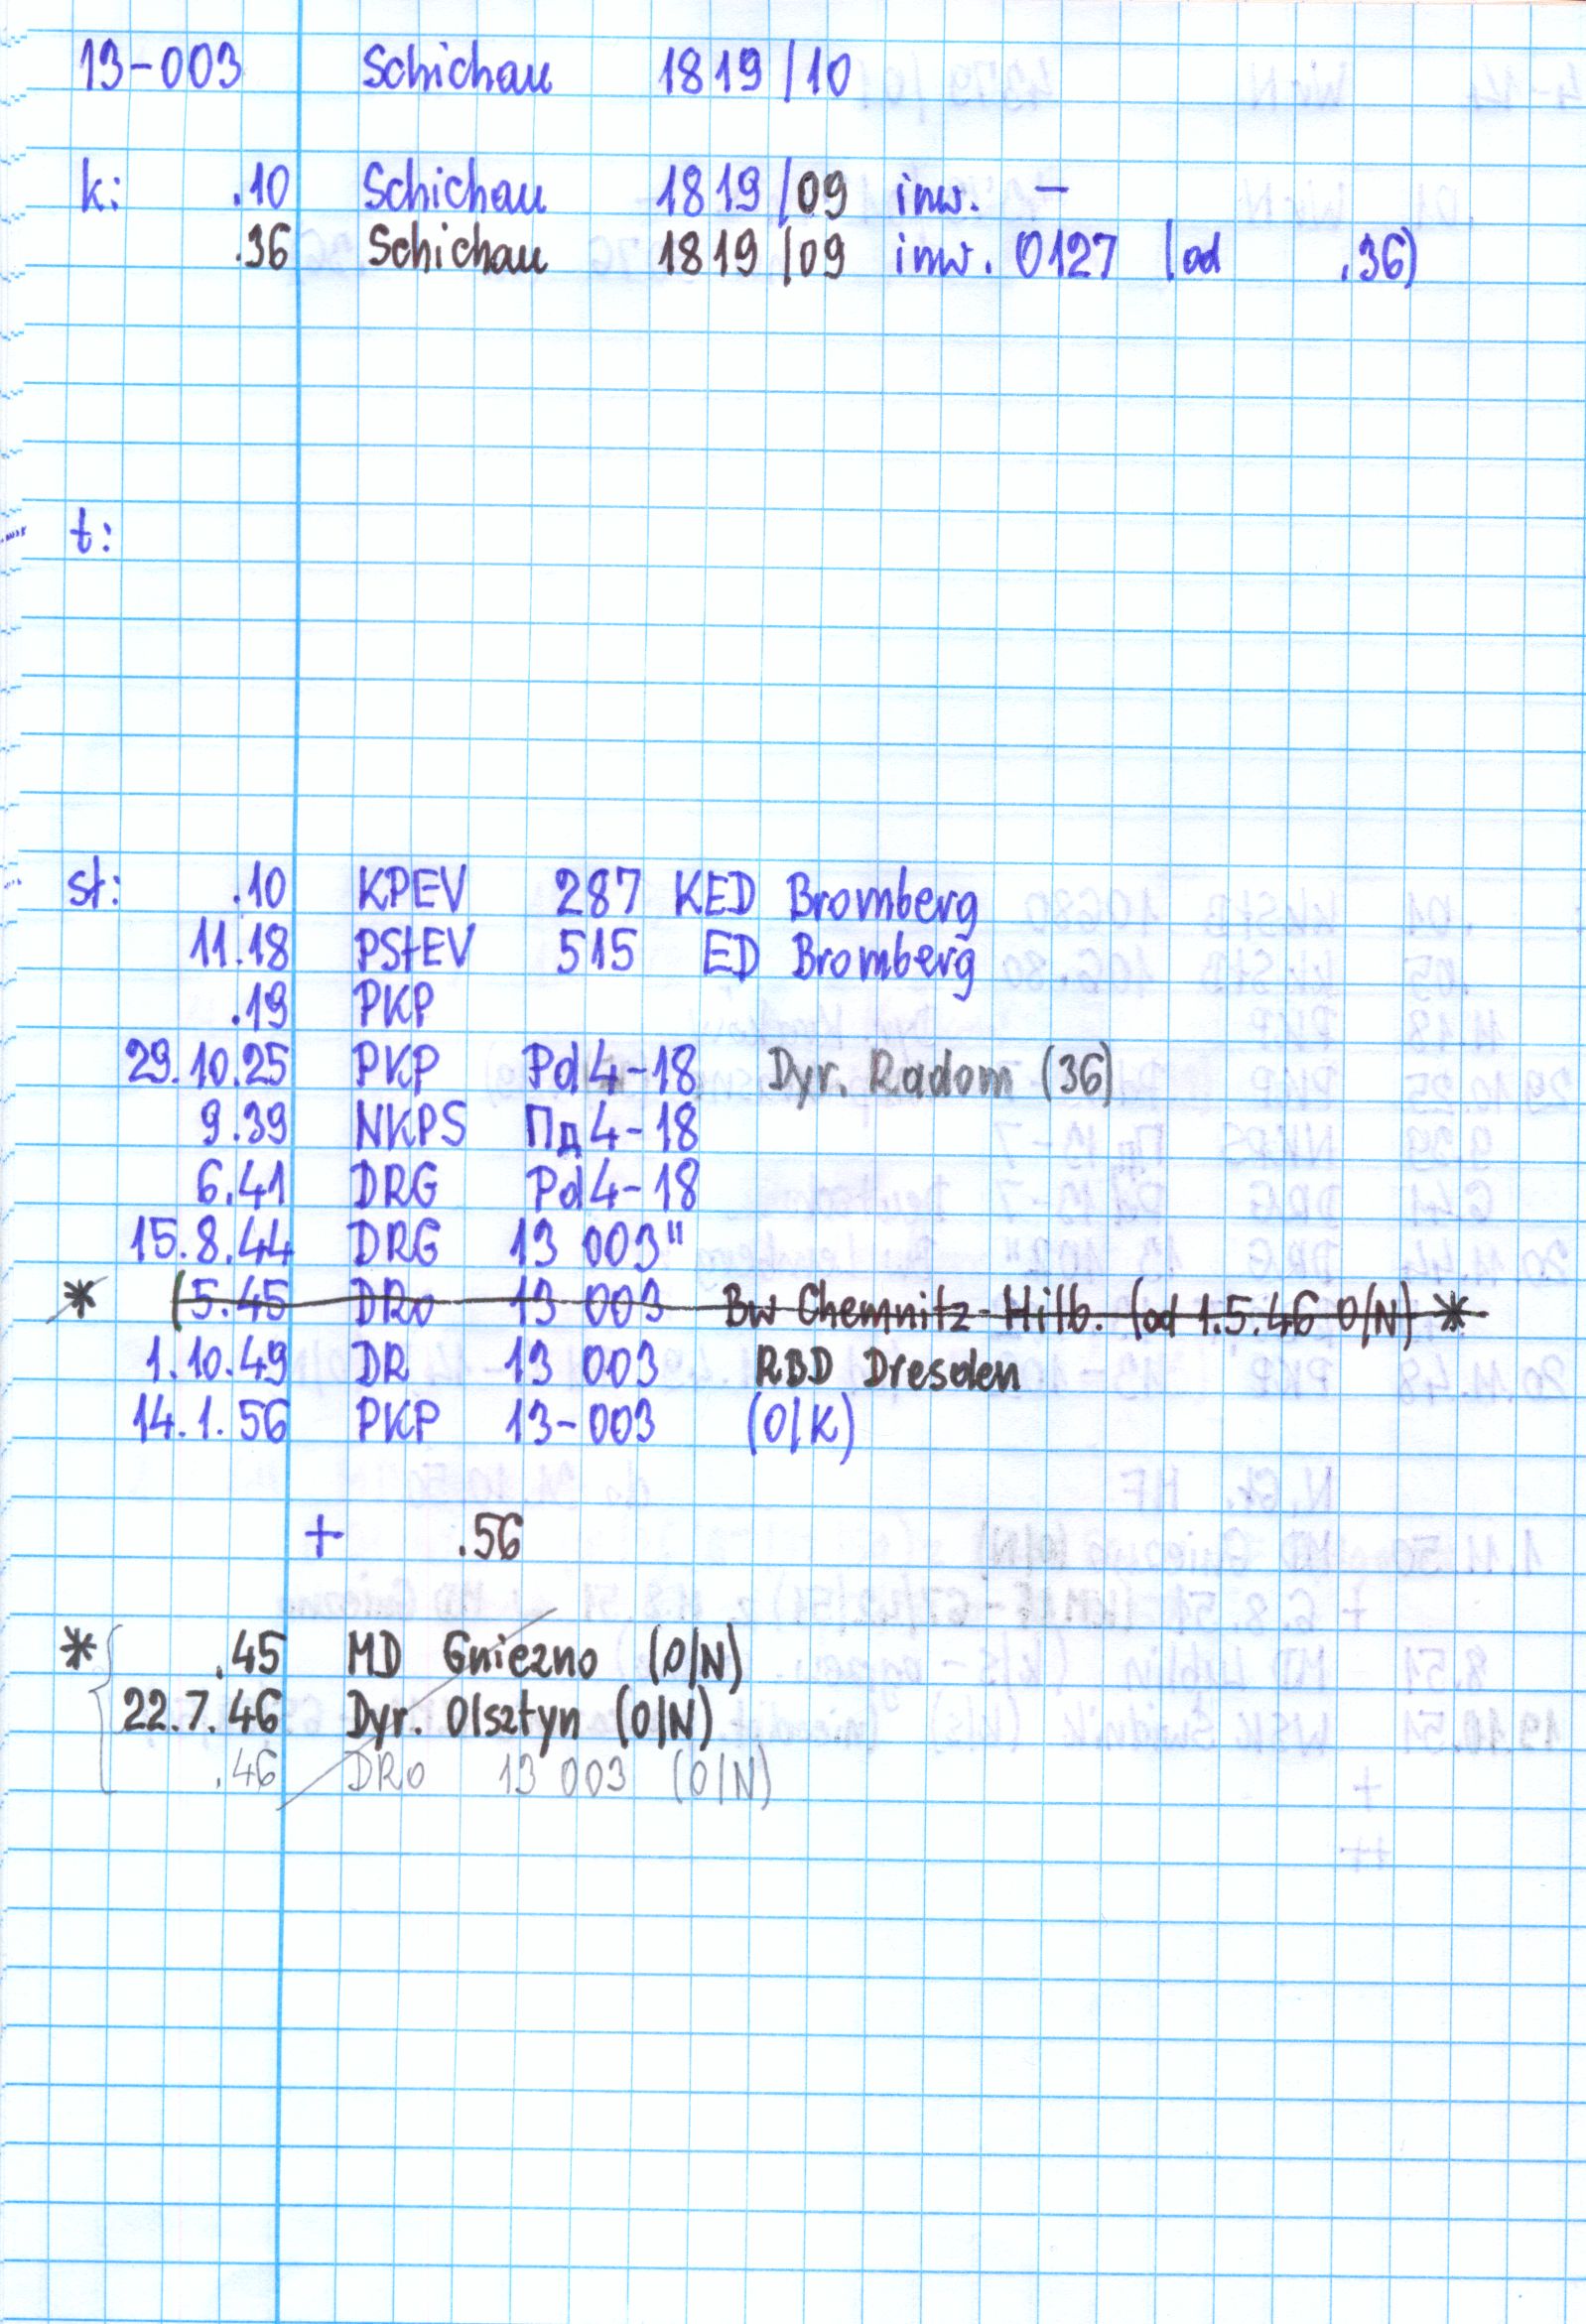 13-003 Schichau 1819/10
k: .10 Schichau 1819/09 inw. –
.36 Schichau 1819/09 inw. 0127 (od .36)
t:
st: .10 KPEV 287 KED Bromberg
11.18 PStEV 515 ED Bromberg
.19 PKP
29.10.25 PKP Pd4-18 Dyr. Radom (36)
9.39 NKPS Пд4-18
6.41 DRG Pd4-18
15.8.44 DRG 13 003"
* (5.45 DRo 13 003 Bw Chemnitz-Hilb. (od 1.5.46 O/N) *
1.10.49 DR 13 003 RBD Dresden
14.1.56 PKP 13-003 (O/K)
+ .56
* .45 MD Gniezno (O/N)
22.7.46 Dyr. Olsztyn (O/N)
.46 DRo 13 003 (O/N)